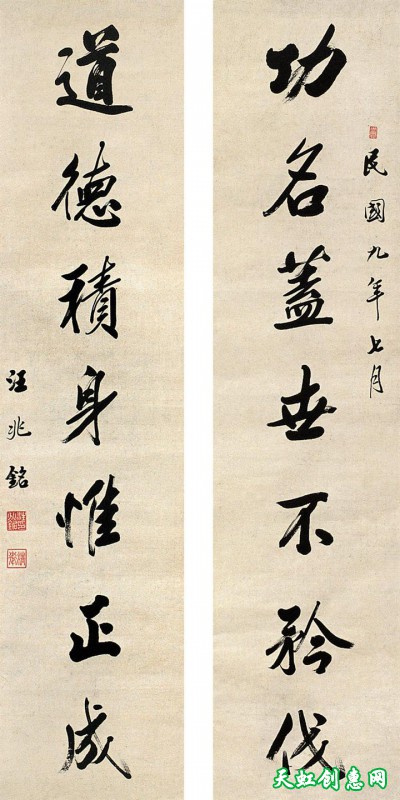 民國九年七月
功名蓋世不矜伐
道德積身惟正成
汪兆銘
天虹创惠网